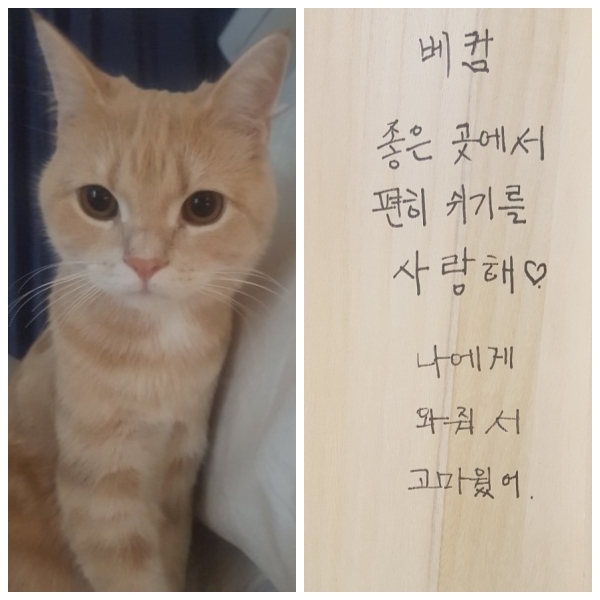 베컴
좋은 곳에서
편히 쉬기를
사랑해♡
나에게
와줘서
고마웠어.